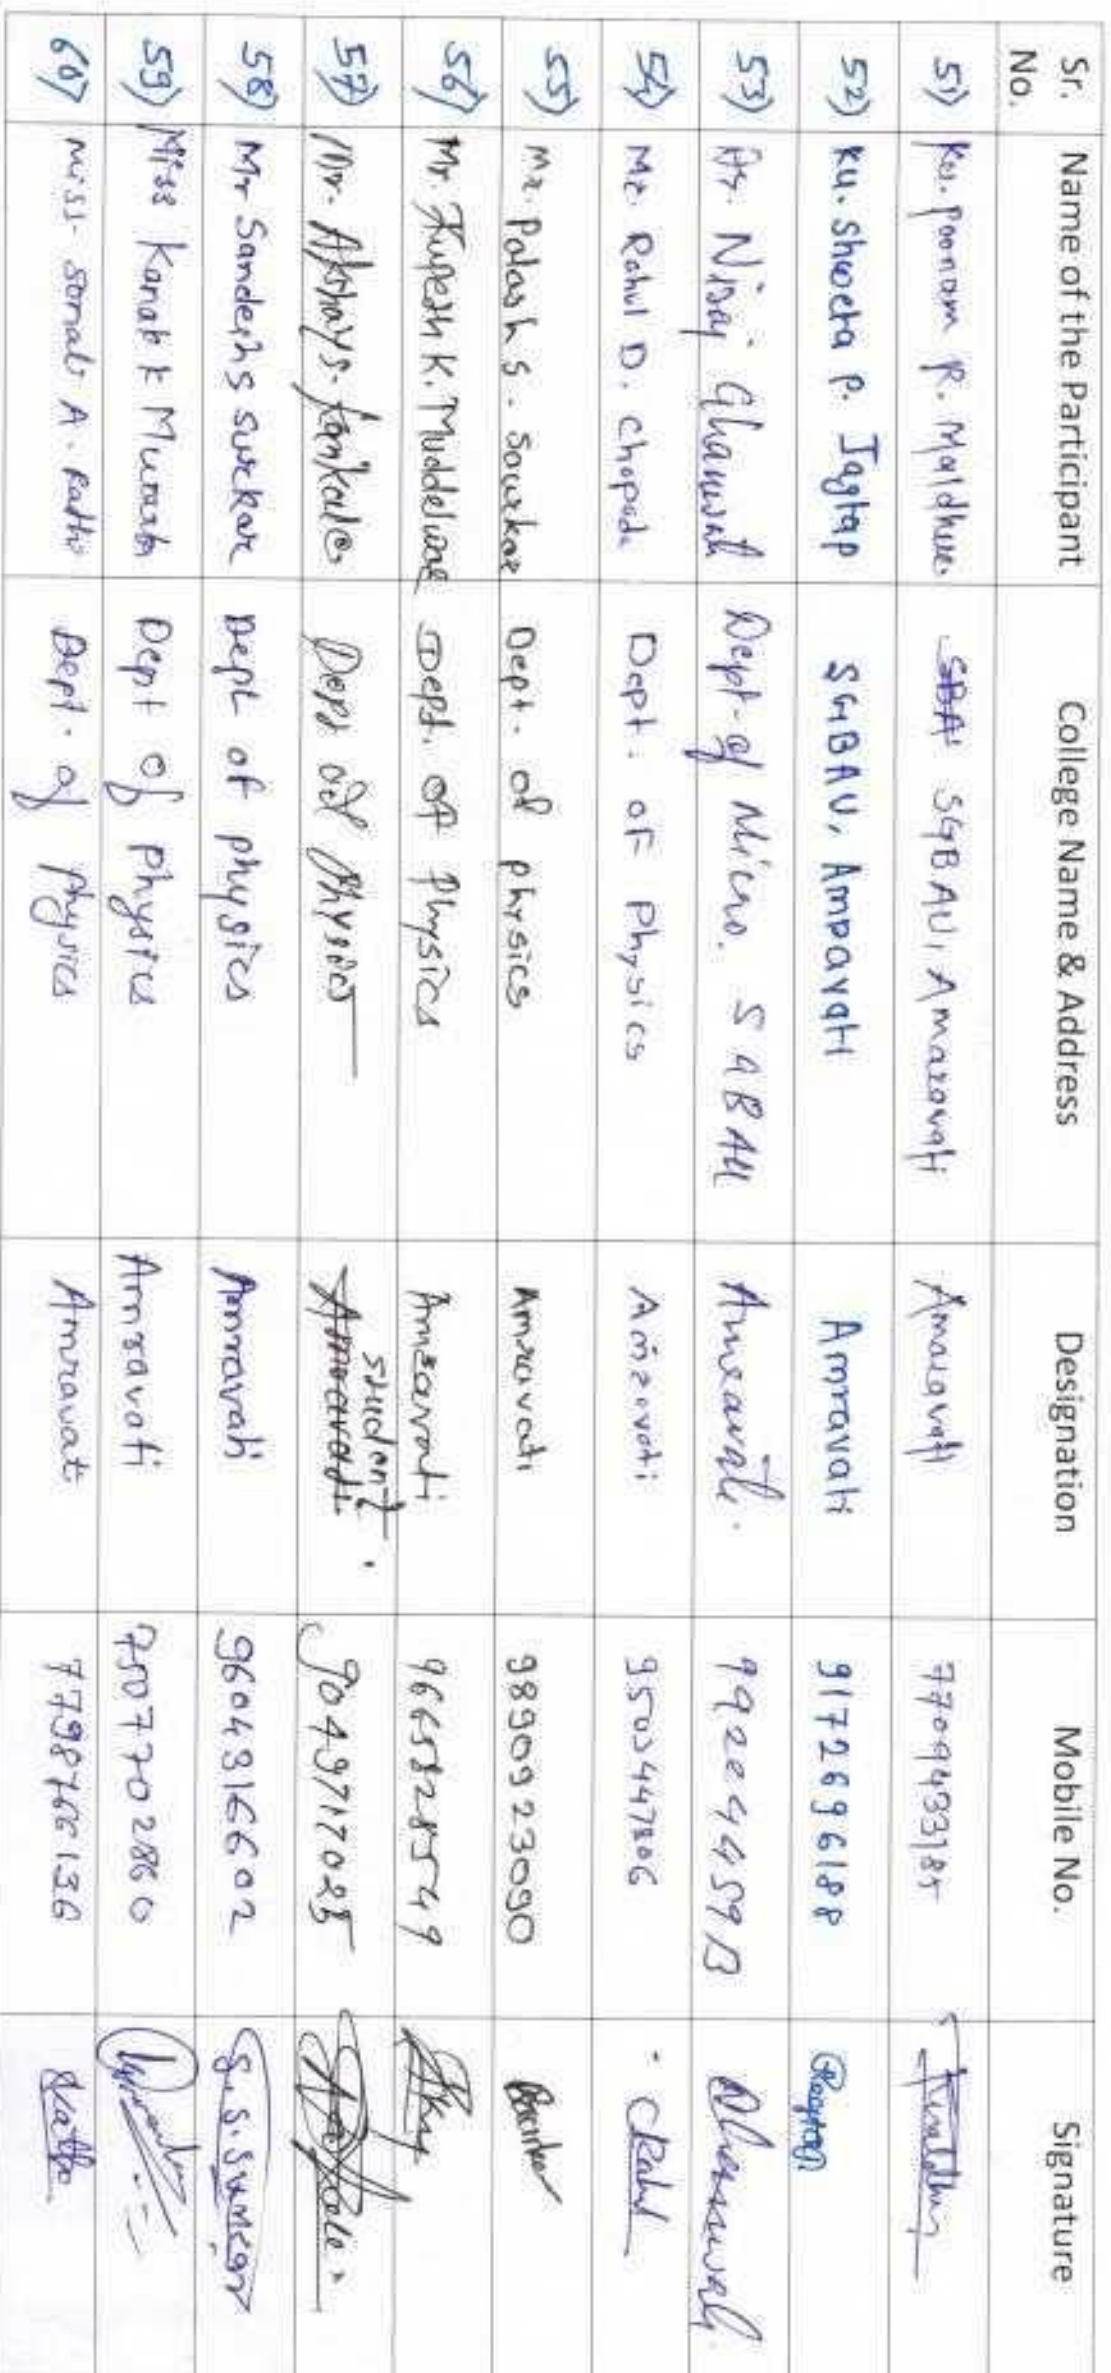 Sr. No. Name of the Participant College Name & Address Designation Mobile No. Signature
51) Ku. Poonam R. Maldhure SBA SGBAU, Amaravati Amaravati 7709433185
52) Ku. Shweta P. Jagtap SGBAU, Amravati Amravati 9172696188
53) Ghanwat Dept. of Micro. SGBAU Amravati.
54) Mr. Rahul D. Chopade Dept. of Physics Amravati
55) Mr. Palash S. Sourkar Dept. of physics Amravati 9890923090
56) Mr. K. Muddelwar Dept. of Physics Amravati 9665828549
57) Mr. Akshay S. Dept of Physics Amravati student.
58) Mr Sandesh S Surkar Dept of physics Amravati 9604316602
59) Miss Kanak K Dept of Physics Amravati 7507702860
60) Miss. Sonali A. Rathi Dept. of physics Amravati 7798766136